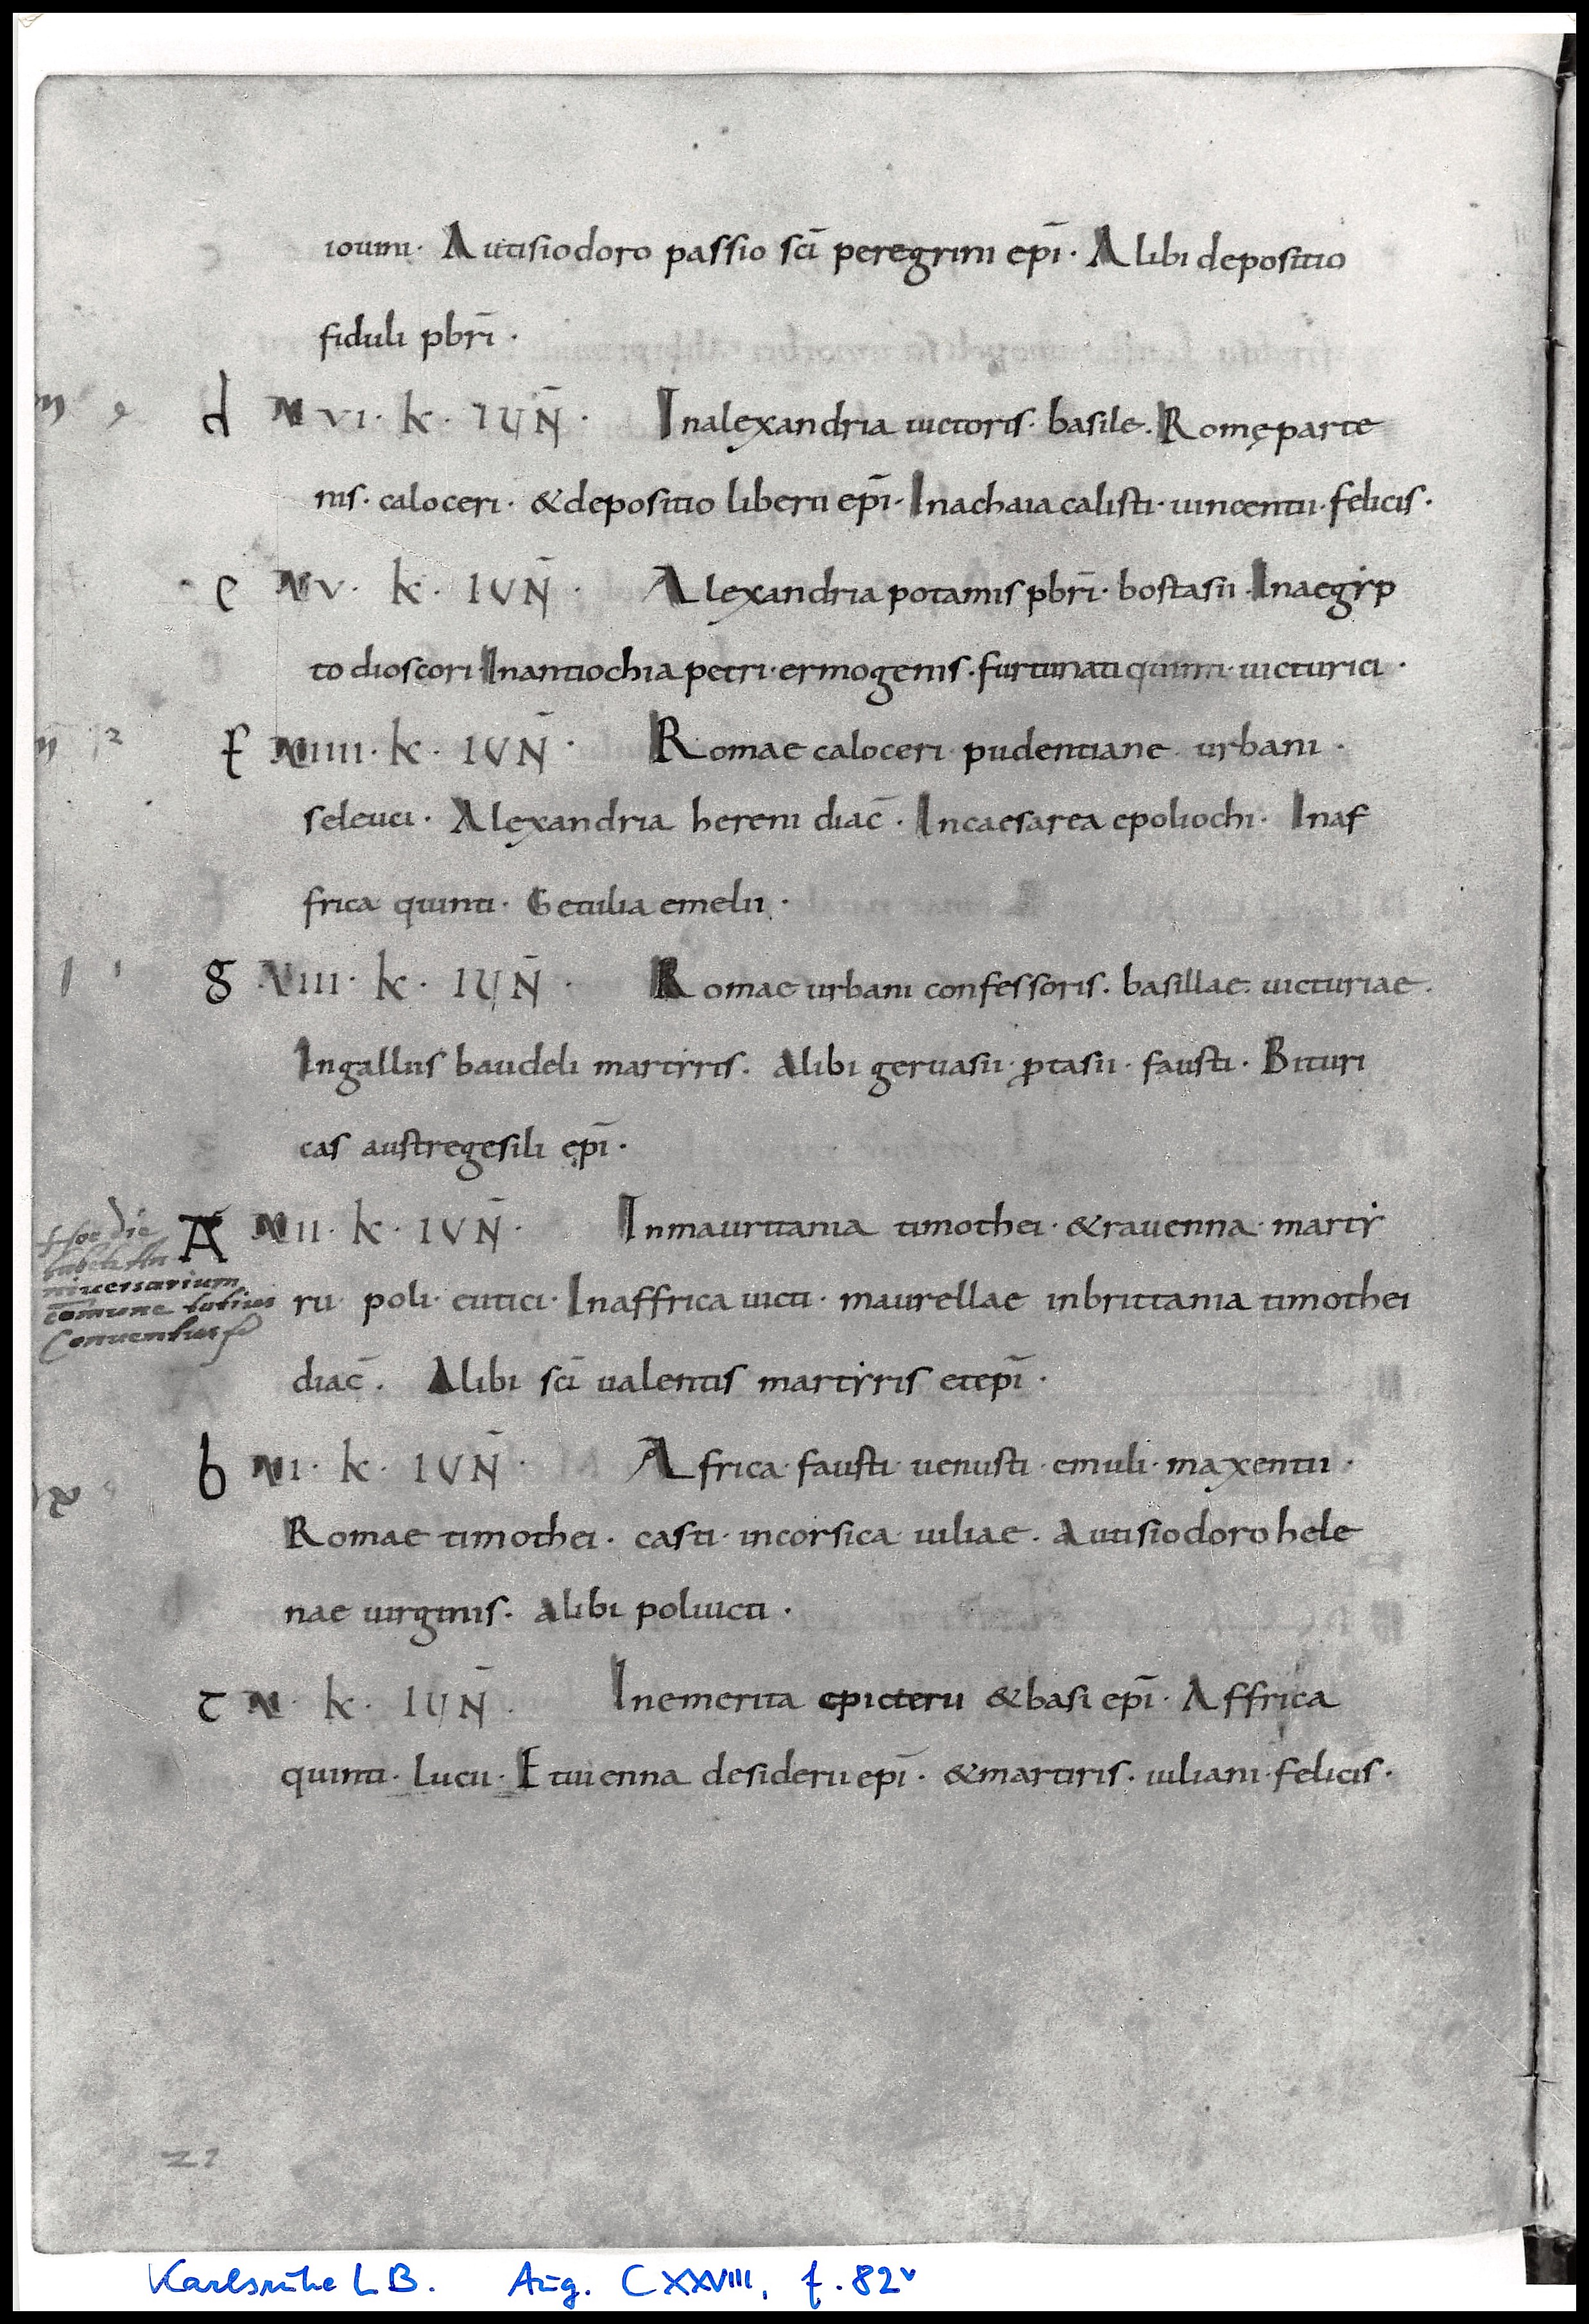 iouini · Autisiodoro passio scī peregrini epī · Alibi depositio
fiduli pbrī ·
d XVI · k · IUN̄ · Inalexandria uictoris · basile · Romę parte
nis · caloceri · &depositio liberti epī · Inachaia calisti · uincentii · felicis ·
e XV · k · IUN̄ · Alexandria potamis pbrī · bostasii · Inaegẏp
to dioscori · Inantiochia petri · ermogenis · furtunati quinti · uicturici ·
f XIIII · k · IUN̄ · Romae caloceri pudentiane urbani ·
seleuci · Alexandria hereni diac̄ · Incaesarea epoliochi · Inaf
frica quinti · Getulia emelii ·
g XIII · k · IUN̄ · Romae urbani confessoris · basillae · uicturiae ·
Ingalliis baudeli martẏris · Alibi geruasii · ꝓtasii · fausti · Bituri
cas austregesili epī ·
hoc die
habetur An
niuersarium
com̄une totius
Conuentus
A XII · k · IUN̄ · Inmauritania timothei · &rauenna · martẏ
ru poli · eutici · Inaffrica uicti · maurellae inbrittania timothei
diac̄ · Alibi scī ualentis martẏris etepī ·
b XI · k · IUN̄ · Africa · fausti · uenusti · emuli · maxentii ·
Romae timothei · casti · incorsica · iuliae · Autisiodoro hele
nae uirginis · Alibi poliuicti ·
c X · k · IUN̄ · Inemerita epicterii &basi epī · Affrica
quinti · Lucii · Etuienna desiderii epī · &martiris · iuliani · felicis ·
21
Karlsruhe LB. Aug. CXXVIII, f. 82ᵛ